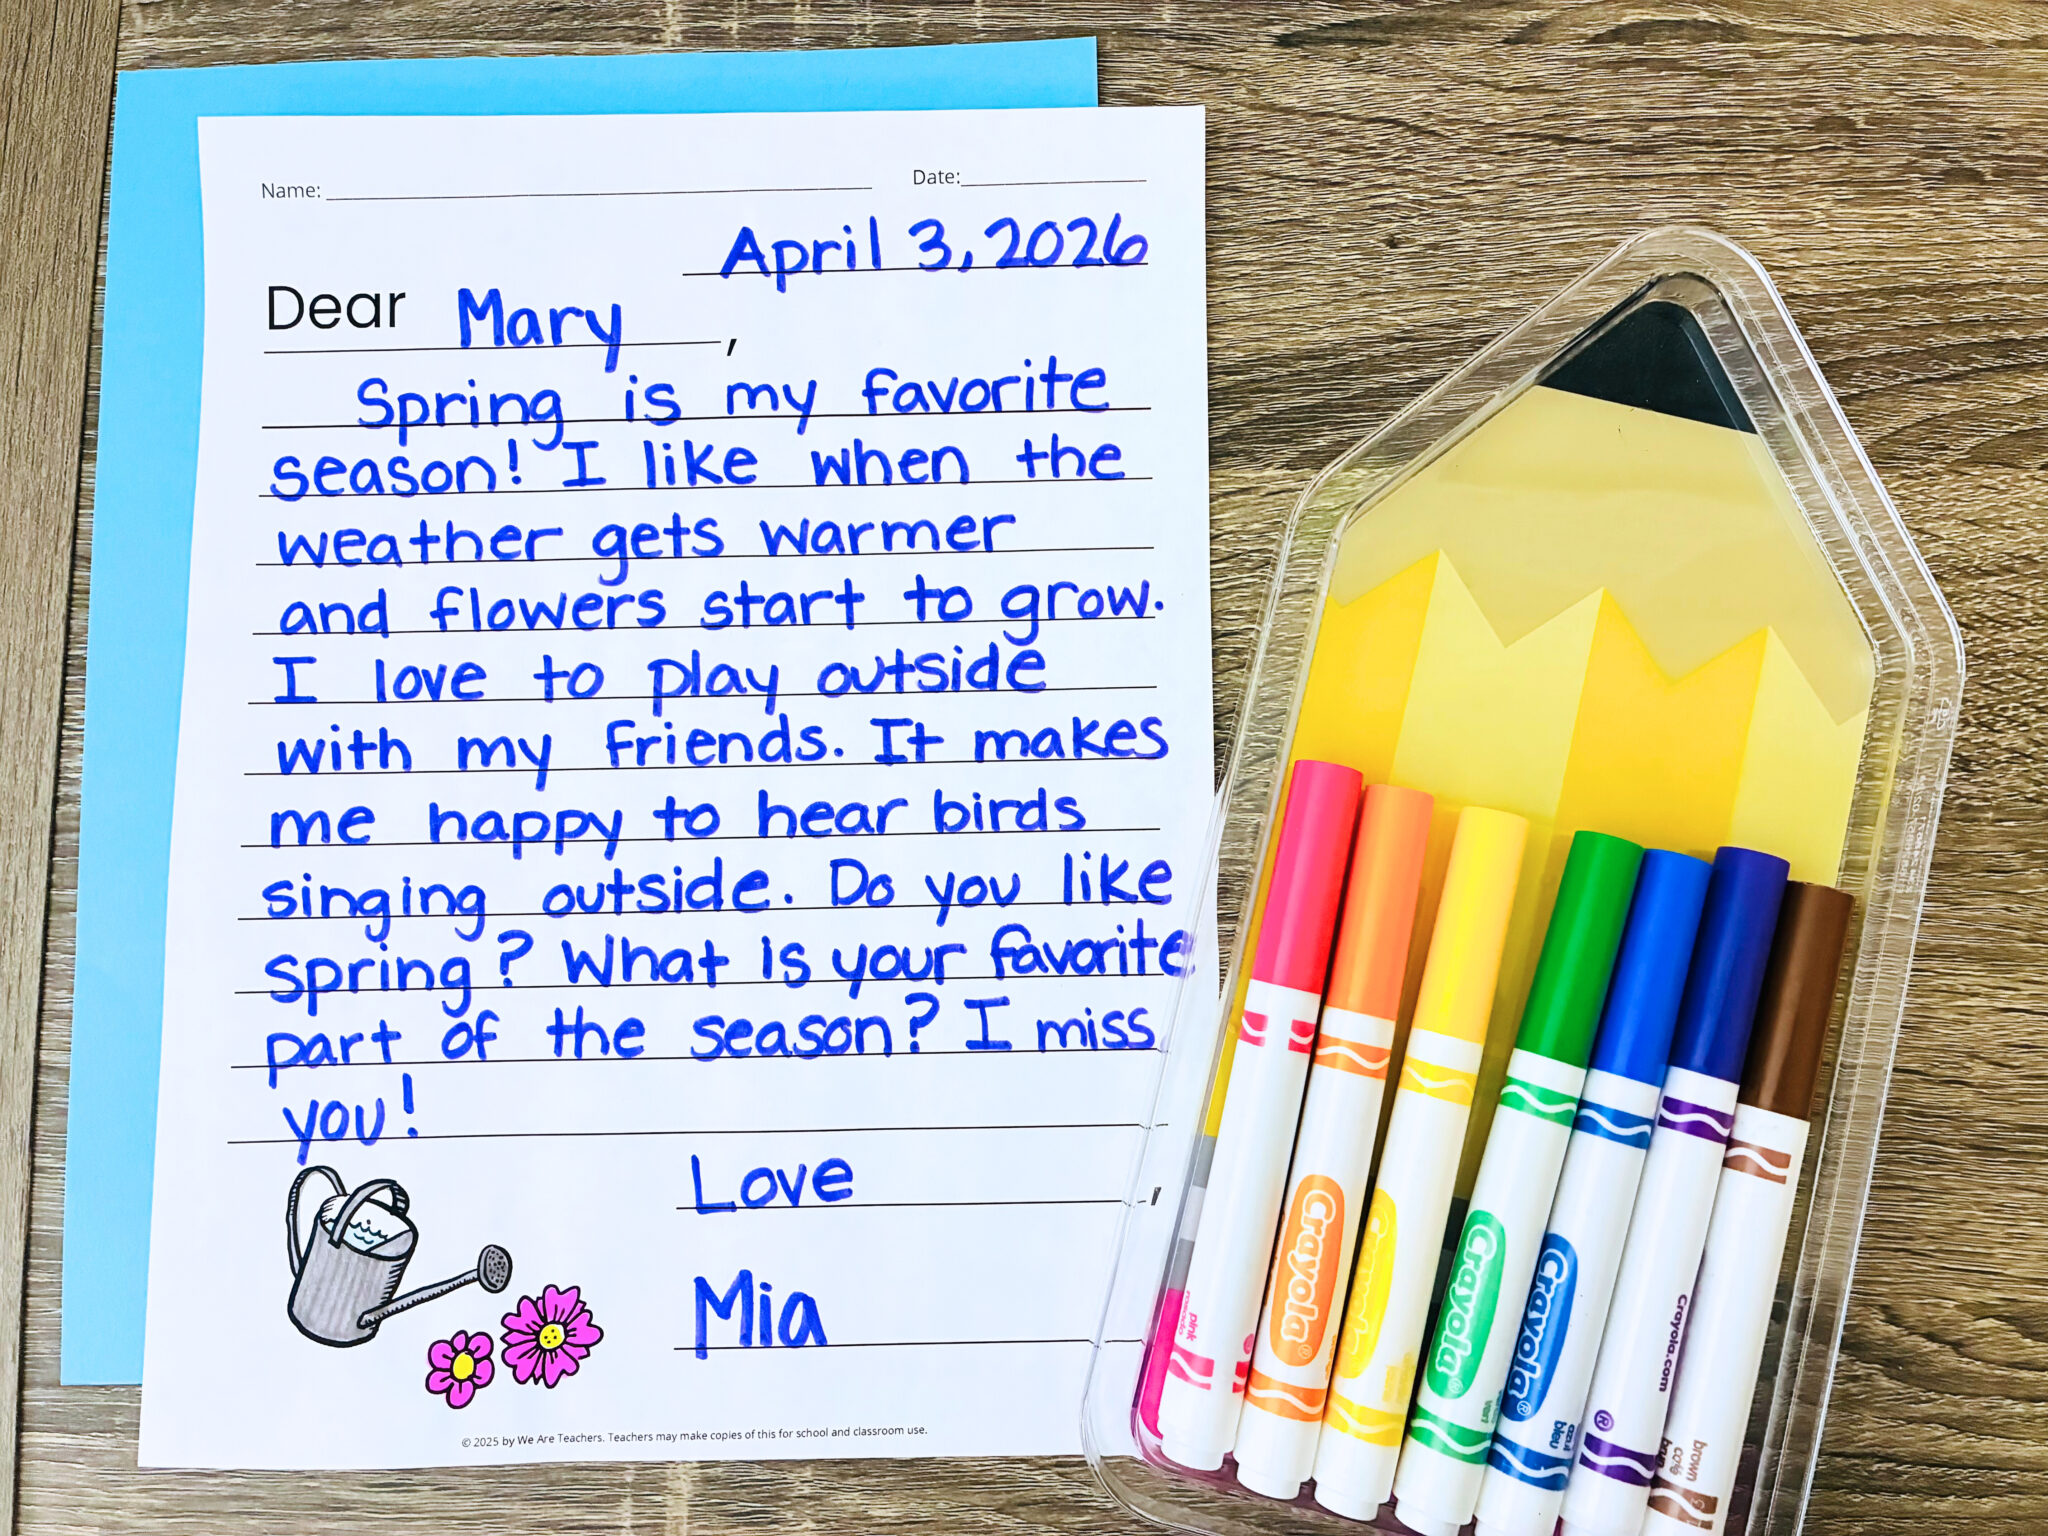 Name: Date:
April 3, 2026
Dear Mary,
Spring is my favorite
season! I like when the
weather gets warmer
and flowers start to grow.
I love to play outside
with my friends. It makes
me happy to hear birds
singing outside. Do you like
spring? What is your favorite
part of the season? I miss
you!
Love,
Mia
© 2025 by We Are Teachers. Teachers may make copies of this for school and classroom use.
pink
Crayola®
Crayola
Crayola®
Crayola®
azul
bleu
crayola.com
®
brown
café
brun